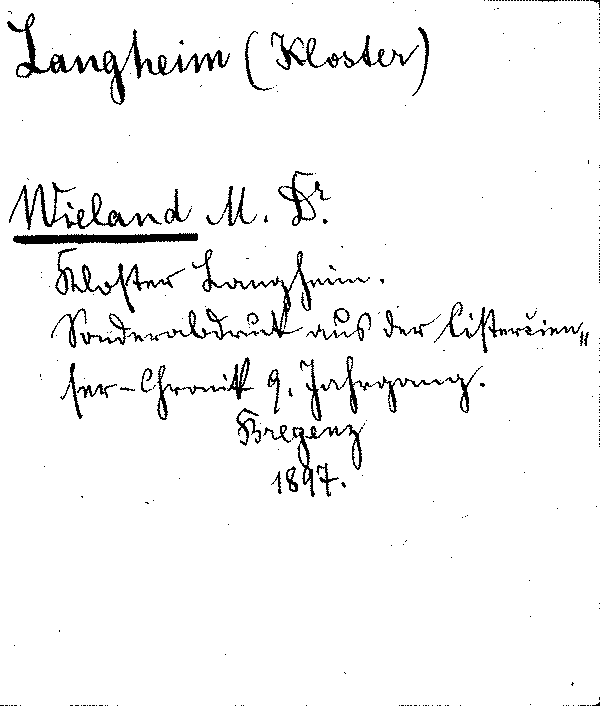 Langheim (Kloster)
Wieland M. Dr.
Kloster Langheim.
Sonderabdruck aus der Cistercien„
ser-Chronik 9. Jahrgang.
Bregenz
1897.